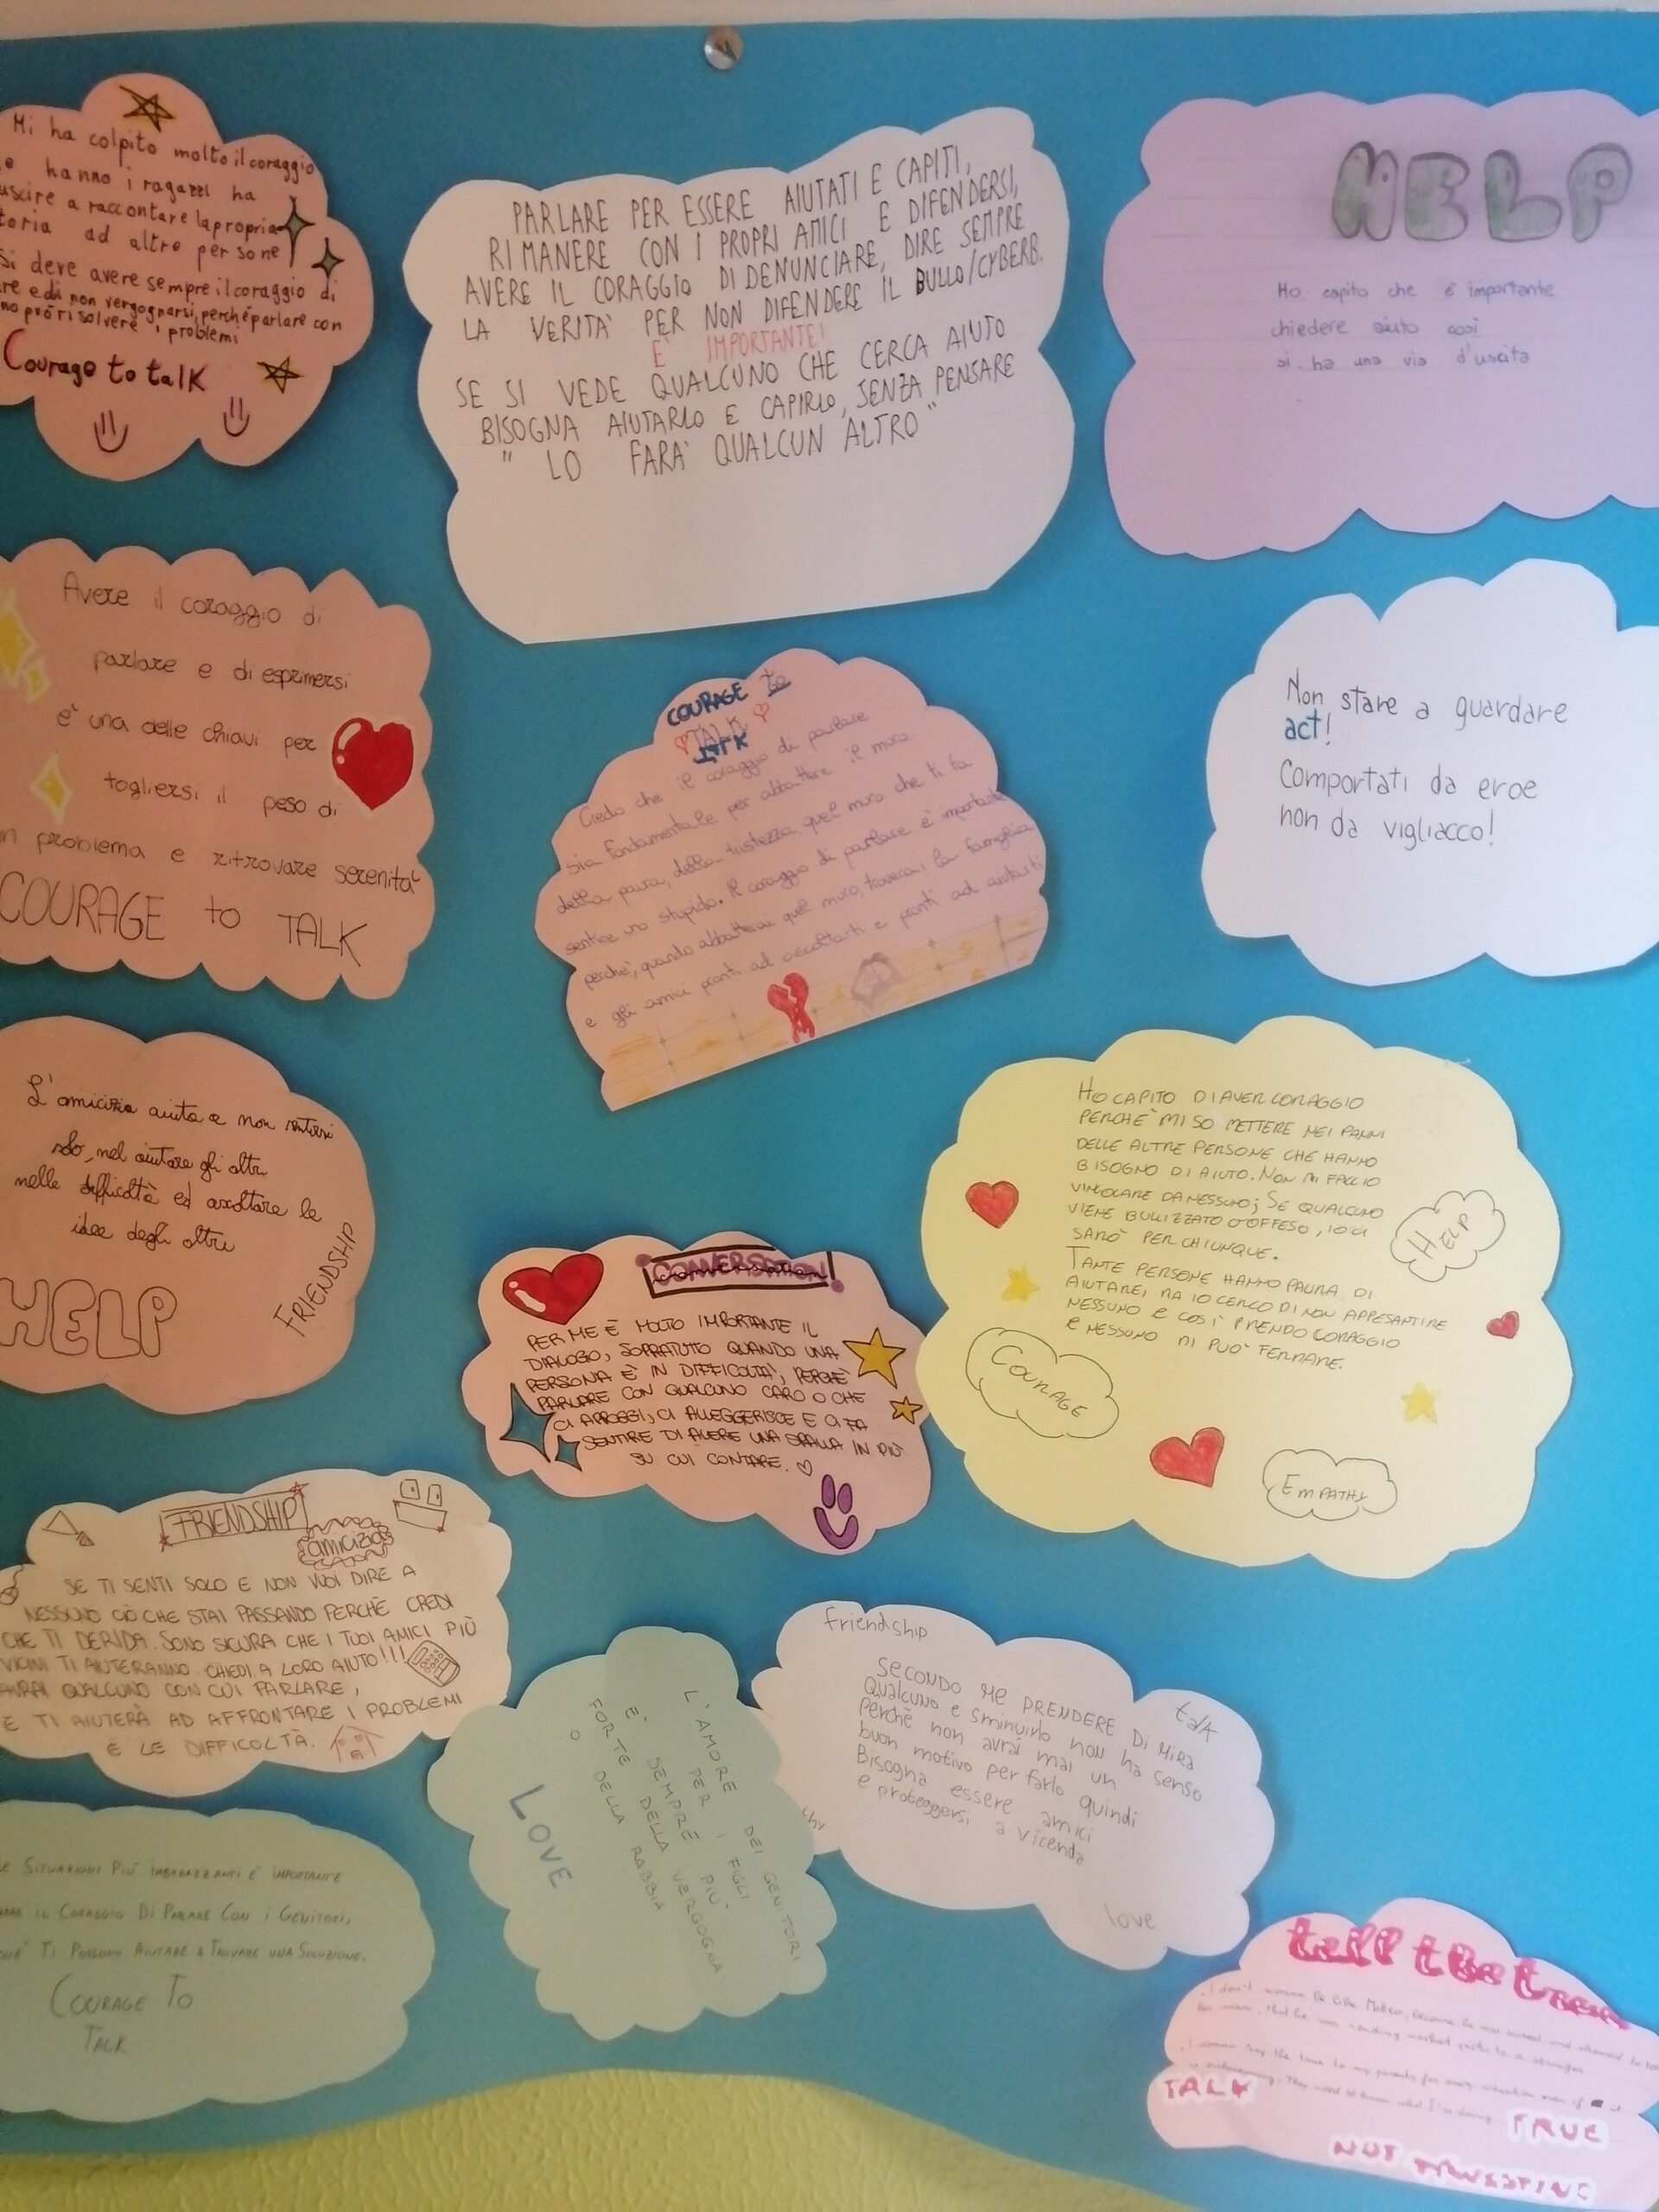 Mi ha colpito molto il coraggio
hanno i ragazzi ha
uscire a raccontare la propria
toria ad altre persone
Si deve avere sempre il coraggio di
re e di non vergognarsi, perché parlare con
no può risolvere i problemi
Courage to talk
PARLARE PER ESSERE AIUTATI E CAPITI,
RIMANERE CON I PROPRI AMICI E DIFENDERSI,
AVERE IL CORAGGIO DI DENUNCIARE, DIRE SEMPRE
LA VERITA' PER NON DIFENDERE IL BULLO/CYBERB.
E' IMPORTANTE!
SE SI VEDE QUALCUNO CHE CERCA AIUTO
BISOGNA AIUTARLO E CAPIRLO, SENZA PENSARE
" LO FARA' QUALCUN ALTRO"
HELP
Ho capito che è importante
chiedere aiuto così
si ha una via d'uscita
Avere il coraggio di
parlare e di esprimersi
è una delle chiavi per
togliersi il peso di
n problema e ritrovare serenità
COURAGE to TALK
COURAGE to
TALK
Credo che il coraggio di parlare
sia fondamentale per abbattere il muro
della paura, della tristezza, quel muro che ti fa
sentire uno stupido. Il coraggio di parlare è importante
perchè, quando abbatterai quel muro, troverai la famiglia
e gli amici pronti ad ascoltarti e pronti ad aiutarti
Non stare a guardare
act!
Comportati da eroe
non da vigliacco!
L'amicizia aiuta a non sentirsi
solo, nel aiutare gli altri
nelle difficoltà ed ascoltare le
idee degli altri
HELP
FRIENDSHIP
HO CAPITO DI AVER CORAGGIO
PERCHE' MI SO METTERE NEI PANNI
DELLE ALTRE PERSONE CHE HANNO
BISOGNO DI AIUTO. NON MI FACCIO
VINCOLARE DA NESSUNO; SE QUALCUNO
VIENE BULLIZZATO O OFFESO, IO CI
SARO' PER CHIUNQUE.
TANTE PERSONE HANNO PAURA DI
AIUTARE, MA IO CERCO DI NON APPESANTIRE
NESSUNO E COSÌ PRENDO CORAGGIO
E NESSUNO MI PUO' FERMARE.
HELP
COURAGE
EMPATHY
CONVERSATION!
PER ME È MOLTO IMPORTANTE IL
DIALOGO, SOPRATUTO QUANDO UNA
PERSONA È IN DIFFICOLTÀ, PERCHÈ
PARLARE CON QUALCUNO CARO O CHE
CI APPOGGI, CI ALLEGGERISCE E CI FA
SENTIRE DI AVERE UNA SPALLA IN PIÙ
SU CUI CONTARE.
FRIENDSHIP
amicizia
SE TI SENTI SOLO E NON VUOI DIRE A
NESSUNO CIÒ CHE STAI PASSANDO PERCHÈ CREDI
CHE TI DERIDA. SONO SICURA CHE I TUOI AMICI PIÙ
VICINI TI AIUTERANNO. CHIEDI A LORO AIUTO!!!
AVRAI QUALCUNO CON CUI PARLARE,
E TI AIUTERÀ AD AFFRONTARE I PROBLEMI
E LE DIFFICOLTÀ.
L'AMORE DEI GENITORI
PER I FIGLI
E' SEMPRE PIÙ
FORTE DELLA VERGOGNA
O DELLA RABBIA
LOVE
Friendship
talk
SECONDO ME PRENDERE DI MIRA
Qualcuno e sminuirlo non ha senso
Perchè non avrai mai un
buon motivo per farlo quindi
Bisogna essere amici
e proteggersi a vicenda
love
E SITUAZIONI PIÙ IMBARAZZANTI È IMPORTANTE
IL CORAGGIO DI PARLARE CON I GENITORI,
TI POSSONO AIUTARE A TROVARE UNA SOLUZIONE.
COURAGE TO
TALK
tell the
I don't wanna be like Matteo, because he was scared and
his mom, that he was sending to a stranger
I wanna say the true to my parents for every situation even if it
They need to know what I'm doing.
TALK
TRUE
NOT